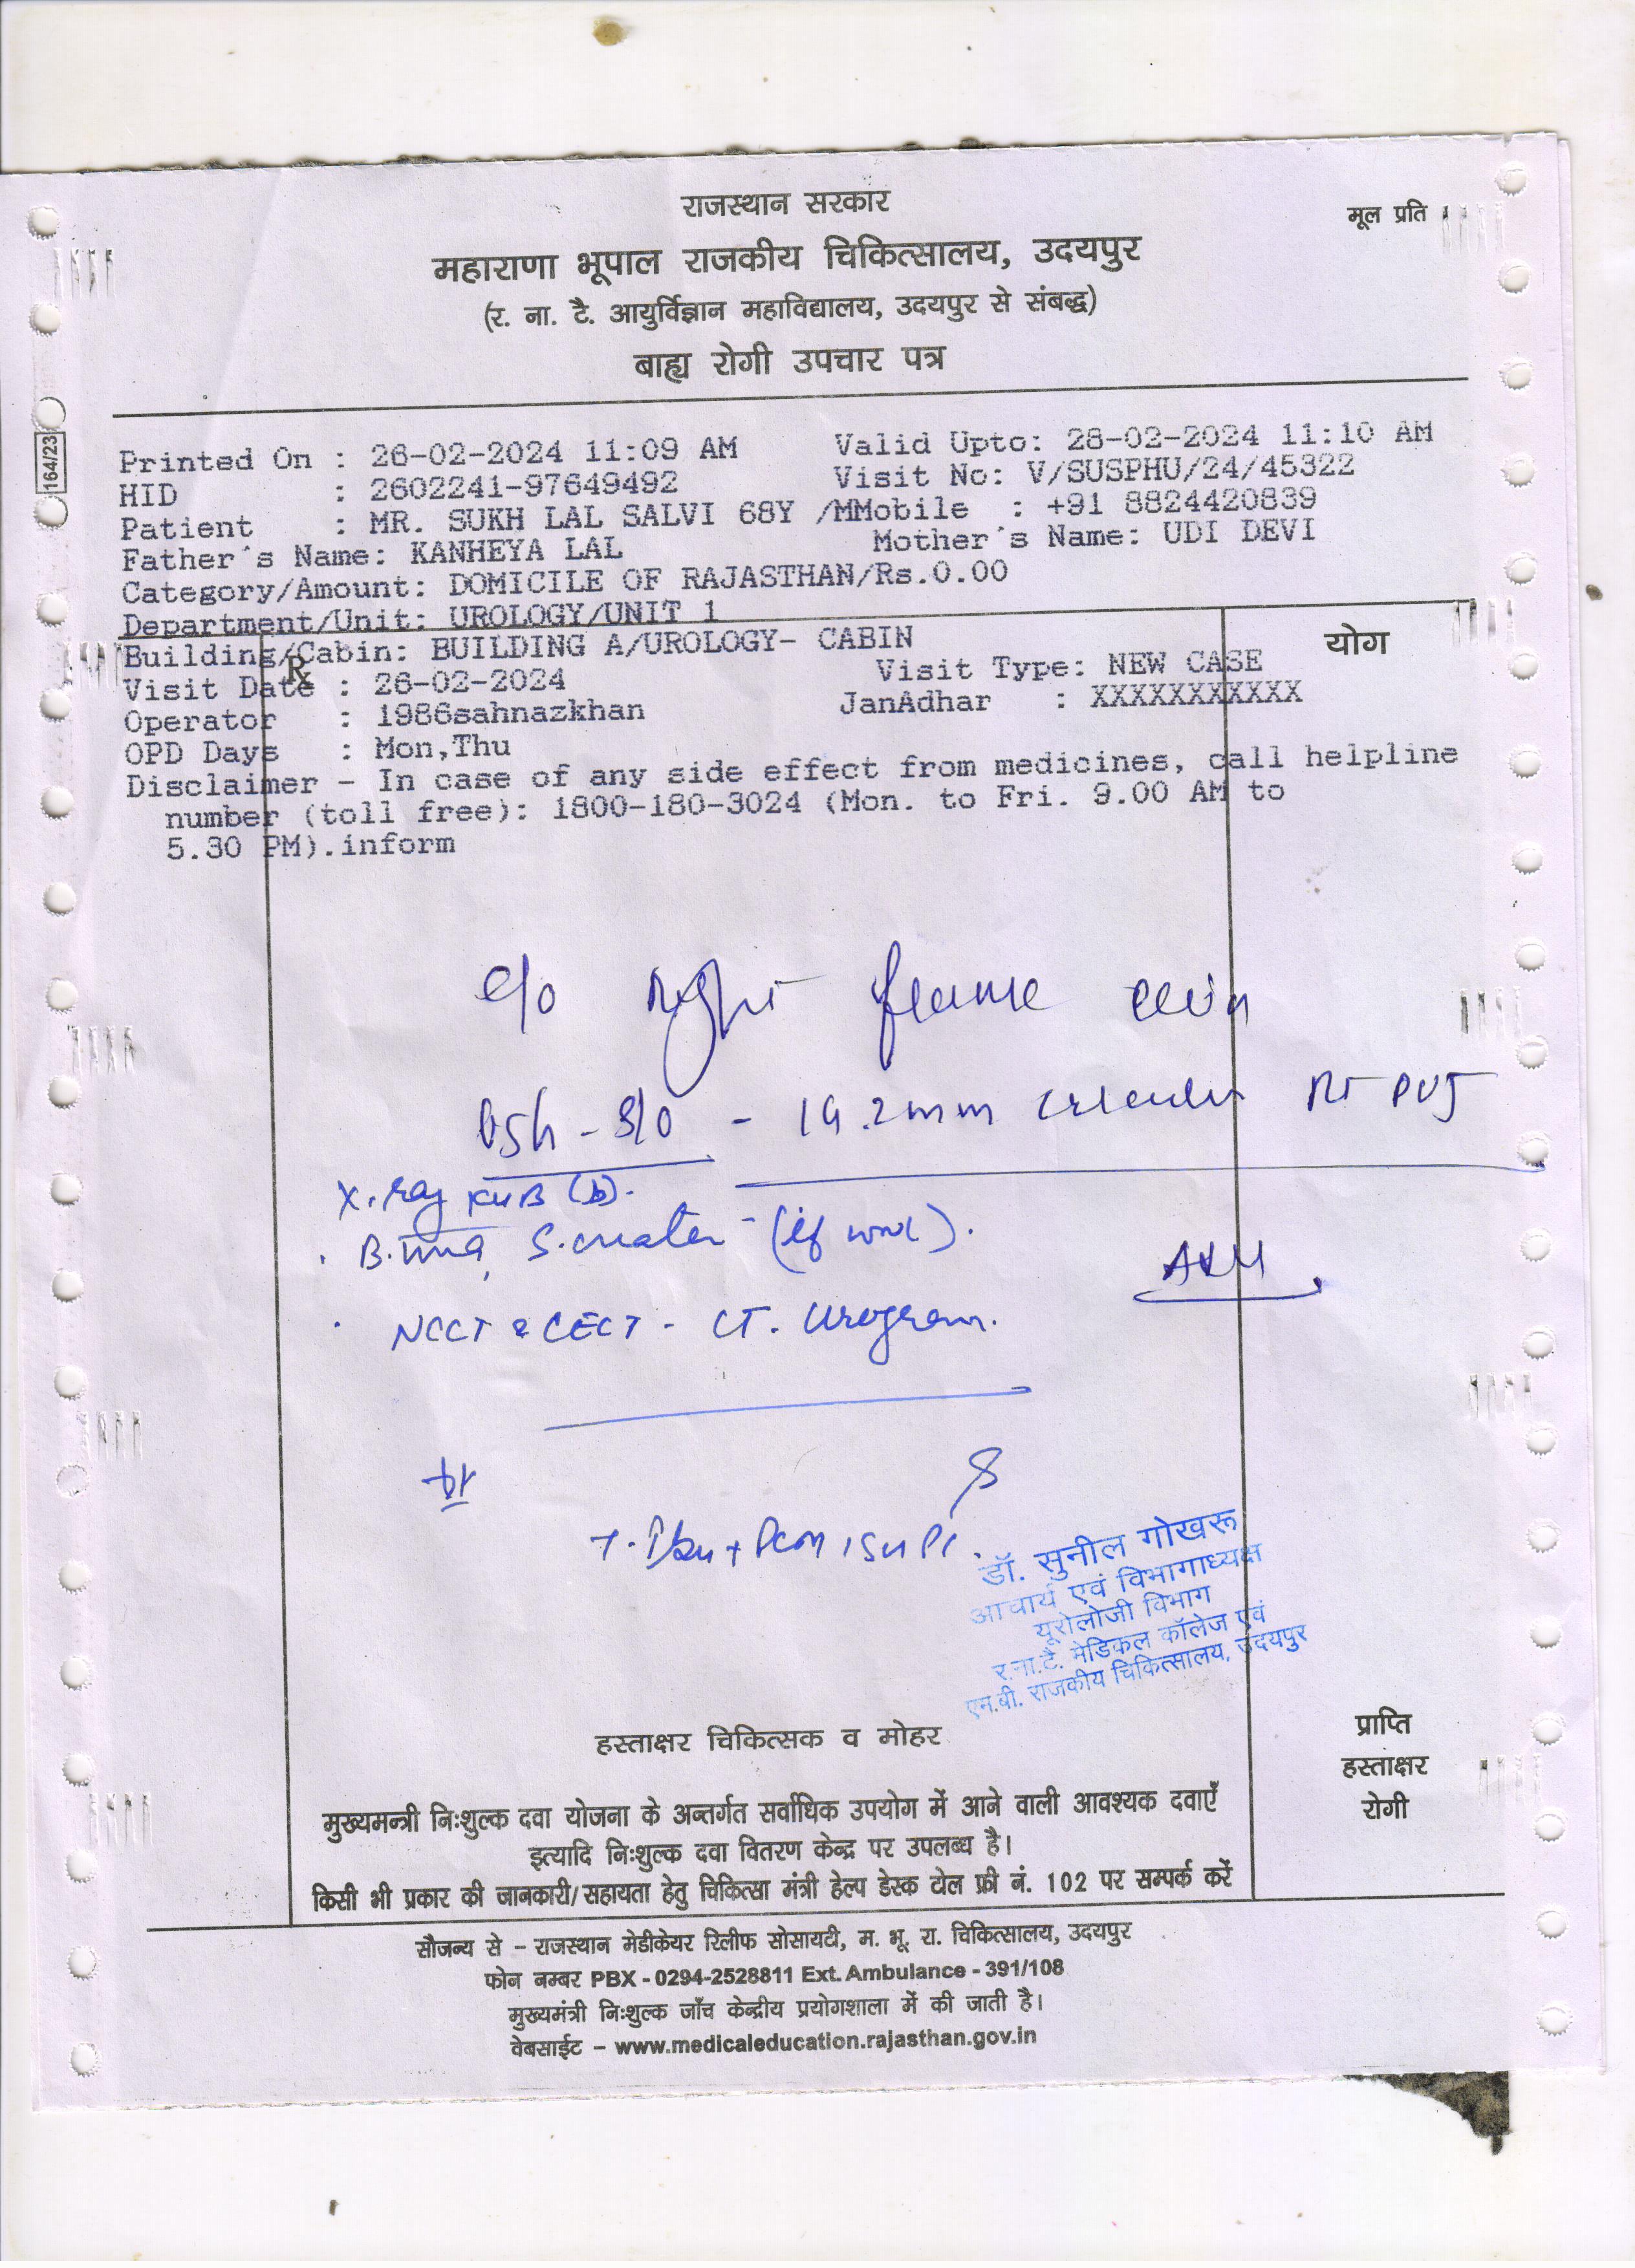 राजस्थान सरकार
मूल प्रति
महाराणा भूपाल राजकीय चिकित्सालय, उदयपुर
(र. ना. टै. आयुर्विज्ञान महाविद्यालय, उदयपुर से संबद्ध)
बाह्य रोगी उपचार पत्र
164/23
Printed On : 26-02-2024 11:09 AM Valid Upto: 28-02-2024 11:10 AM
HID : 2602241-97649492 Visit No: V/SUSPHU/24/45322
Patient : MR. SUKH LAL SALVI 68Y /MMobile : +91 8824420839
Father's Name: KANHEYA LAL Mother's Name: UDI DEVI
Category/Amount: DOMICILE OF RAJASTHAN/Rs.0.00
Department/Unit: UROLOGY/UNIT 1
Building/Cabin: BUILDING A/UROLOGY- CABIN
योग
Rx
Visit Date : 26-02-2024 Visit Type: NEW CASE
Operator : 1986sahnazkhan JanAdhar : XXXXXXXXXXX
OPD Days : Mon,Thu
Disclaimer - In case of any side effect from medicines, call helpline
number (toll free): 1800-180-3024 (Mon. to Fri. 9.00 AM to
5.30 PM).inform
c/o Right
- S/O - 19.2mm Rt PUJ
X.ray KUB (b).
B. (if wnl).
NCCT & CECT - CT. Urogram.
डॉ. सुनील गोखरू
आचार्य एवं विभागाध्यक्ष
यूरोलोजी विभाग
र.ना.टै. मेडिकल कॉलेज एवं
एम.बी. राजकीय चिकित्सालय, उदयपुर
हस्ताक्षर चिकित्सक व मोहर
प्राप्ति
हस्ताक्षर
रोगी
मुख्यमन्त्री निःशुल्क दवा योजना के अन्तर्गत सर्वाधिक उपयोग में आने वाली आवश्यक दवाएँ
इत्यादि निःशुल्क दवा वितरण केन्द्र पर उपलब्ध है।
किसी भी प्रकार की जानकारी/सहायता हेतु चिकित्सा मंत्री हेल्प डेस्क टोल फ्री नं. 102 पर सम्पर्क करें
सौजन्य से – राजस्थान मेडीकेयर रिलीफ सोसायटी, म. भू. रा. चिकित्सालय, उदयपुर
फोन नम्बर PBX - 0294-2528811 Ext. Ambulance - 391/108
मुख्यमंत्री निःशुल्क जाँच केन्द्रीय प्रयोगशाला में की जाती है।
वेबसाईट – www.medicaleducation.rajasthan.gov.in